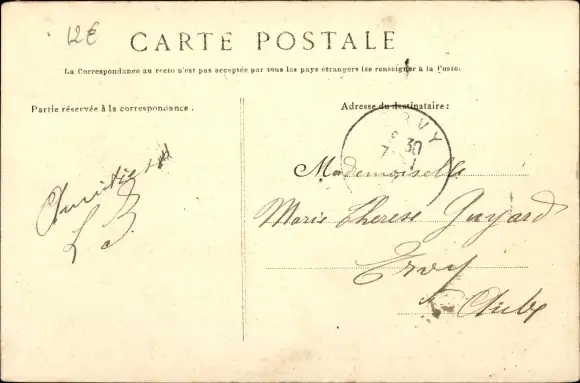 12€
CARTE POSTALE
La Correspondance au recto n'est pas acceptée par tous les pays étrangers (se renseigner à la Poste)
Partie réservée à la correspondance.
Adresse du destinataire:
RVY
30
7
Mademoiselle
Amitiés
L B.
Marie Therese Guyard
Ervy
Aube